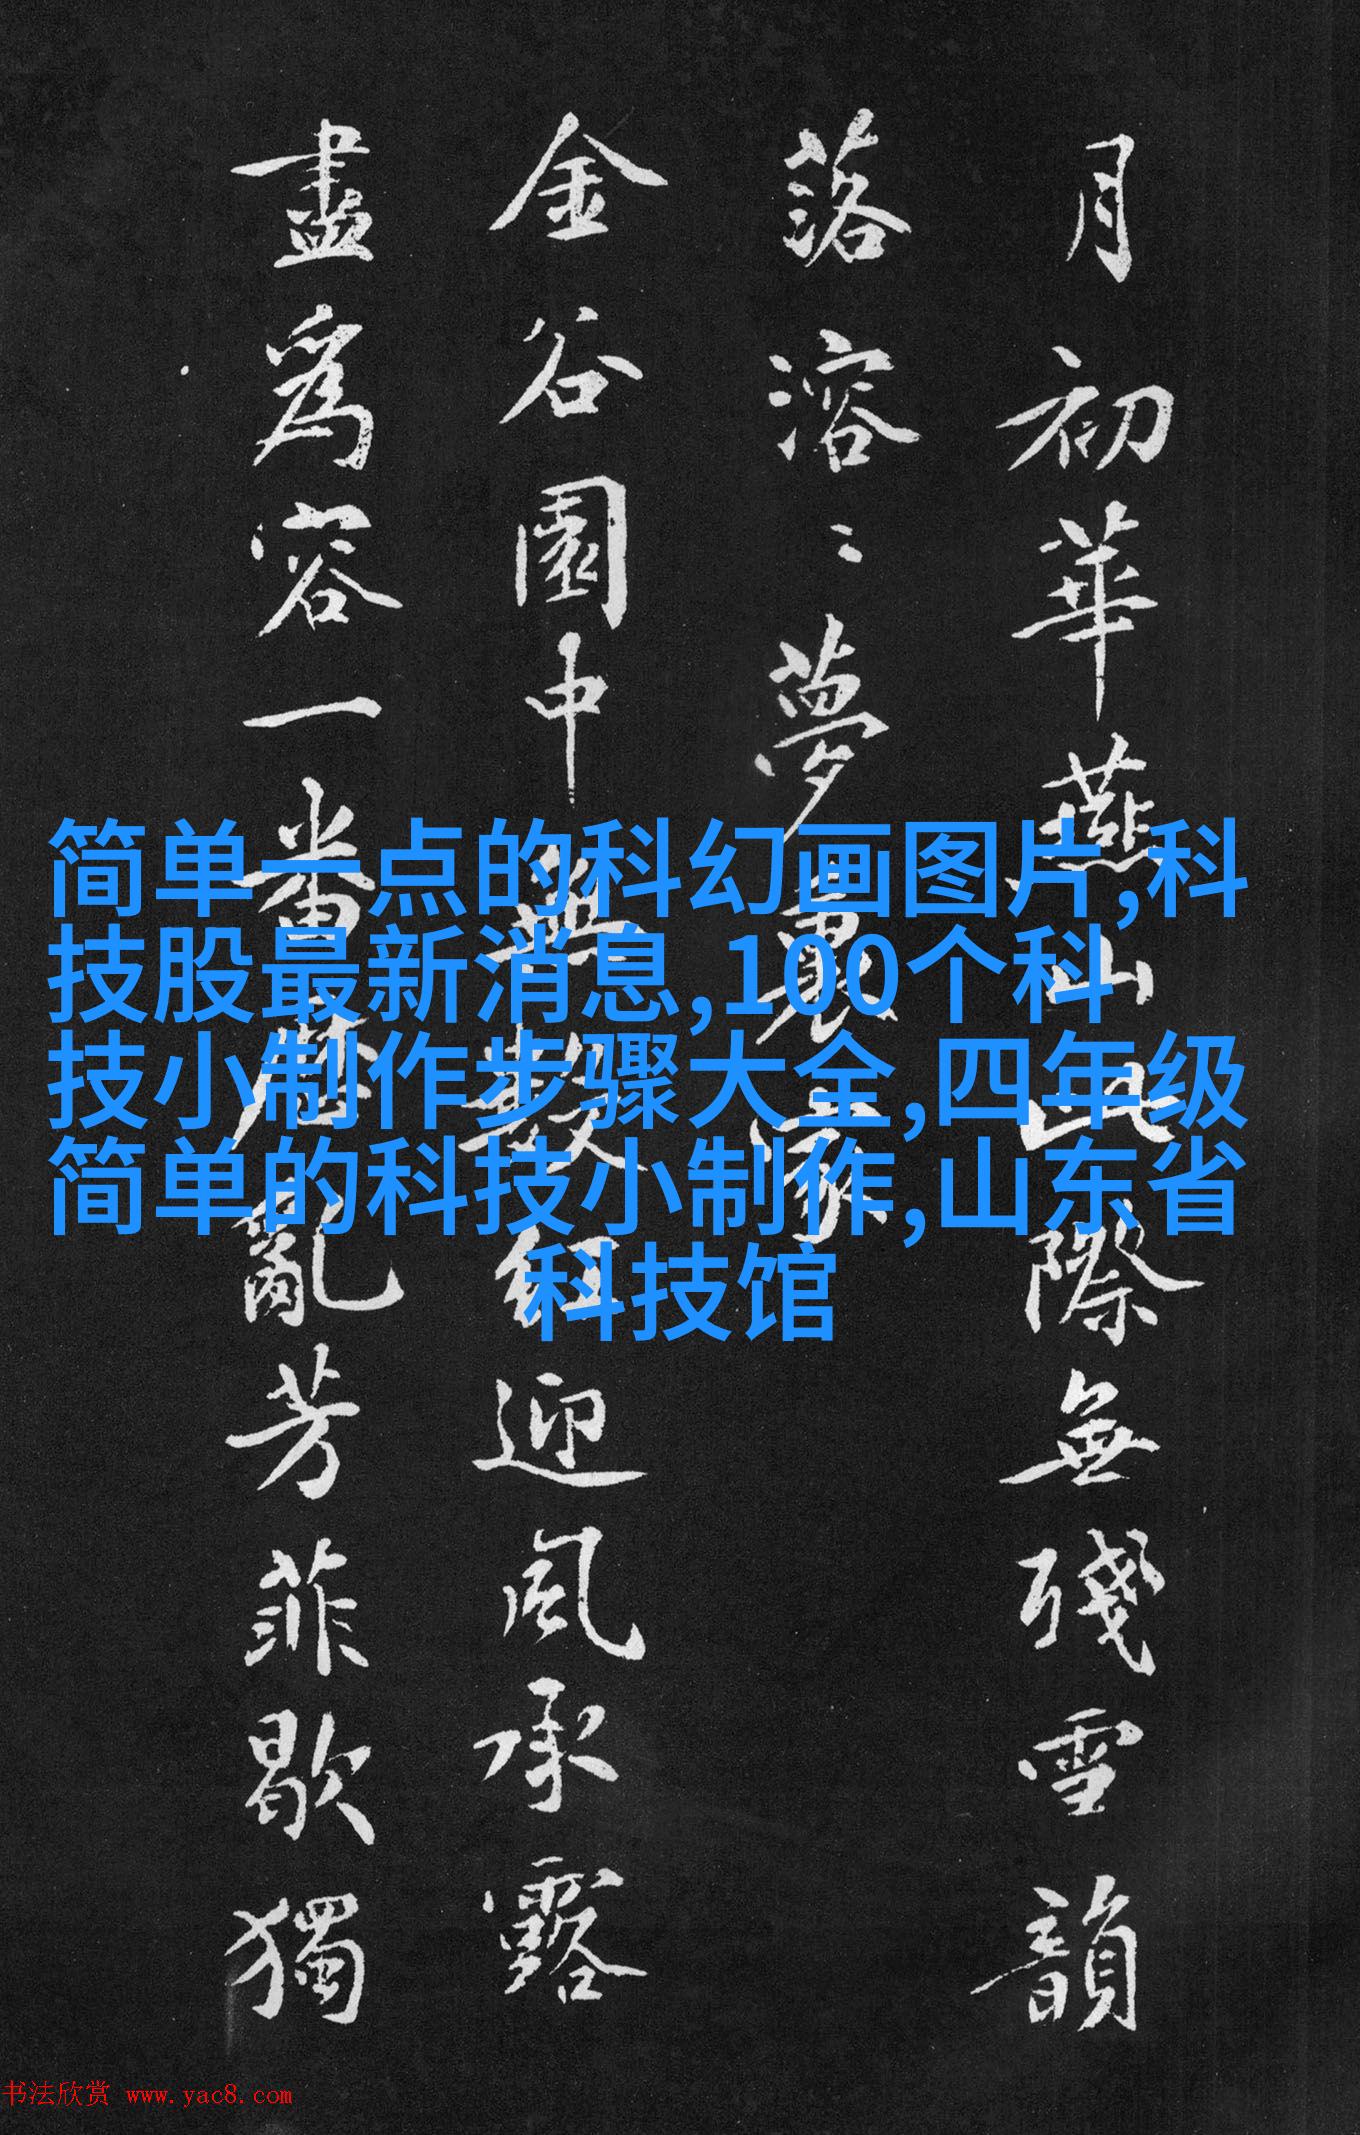 月初華燕山此際無殘雪韻
落溶〻夢裏家
金谷園中無數紅迎風承露
盡為容一番歷亂芳菲歇獨
简单一点的科幻画图片,科
技股最新消息,100个科
技小制作步骤大全,四年级
简单的科技小制作,山东省
科技馆
书法欣赏 www.yac8.com